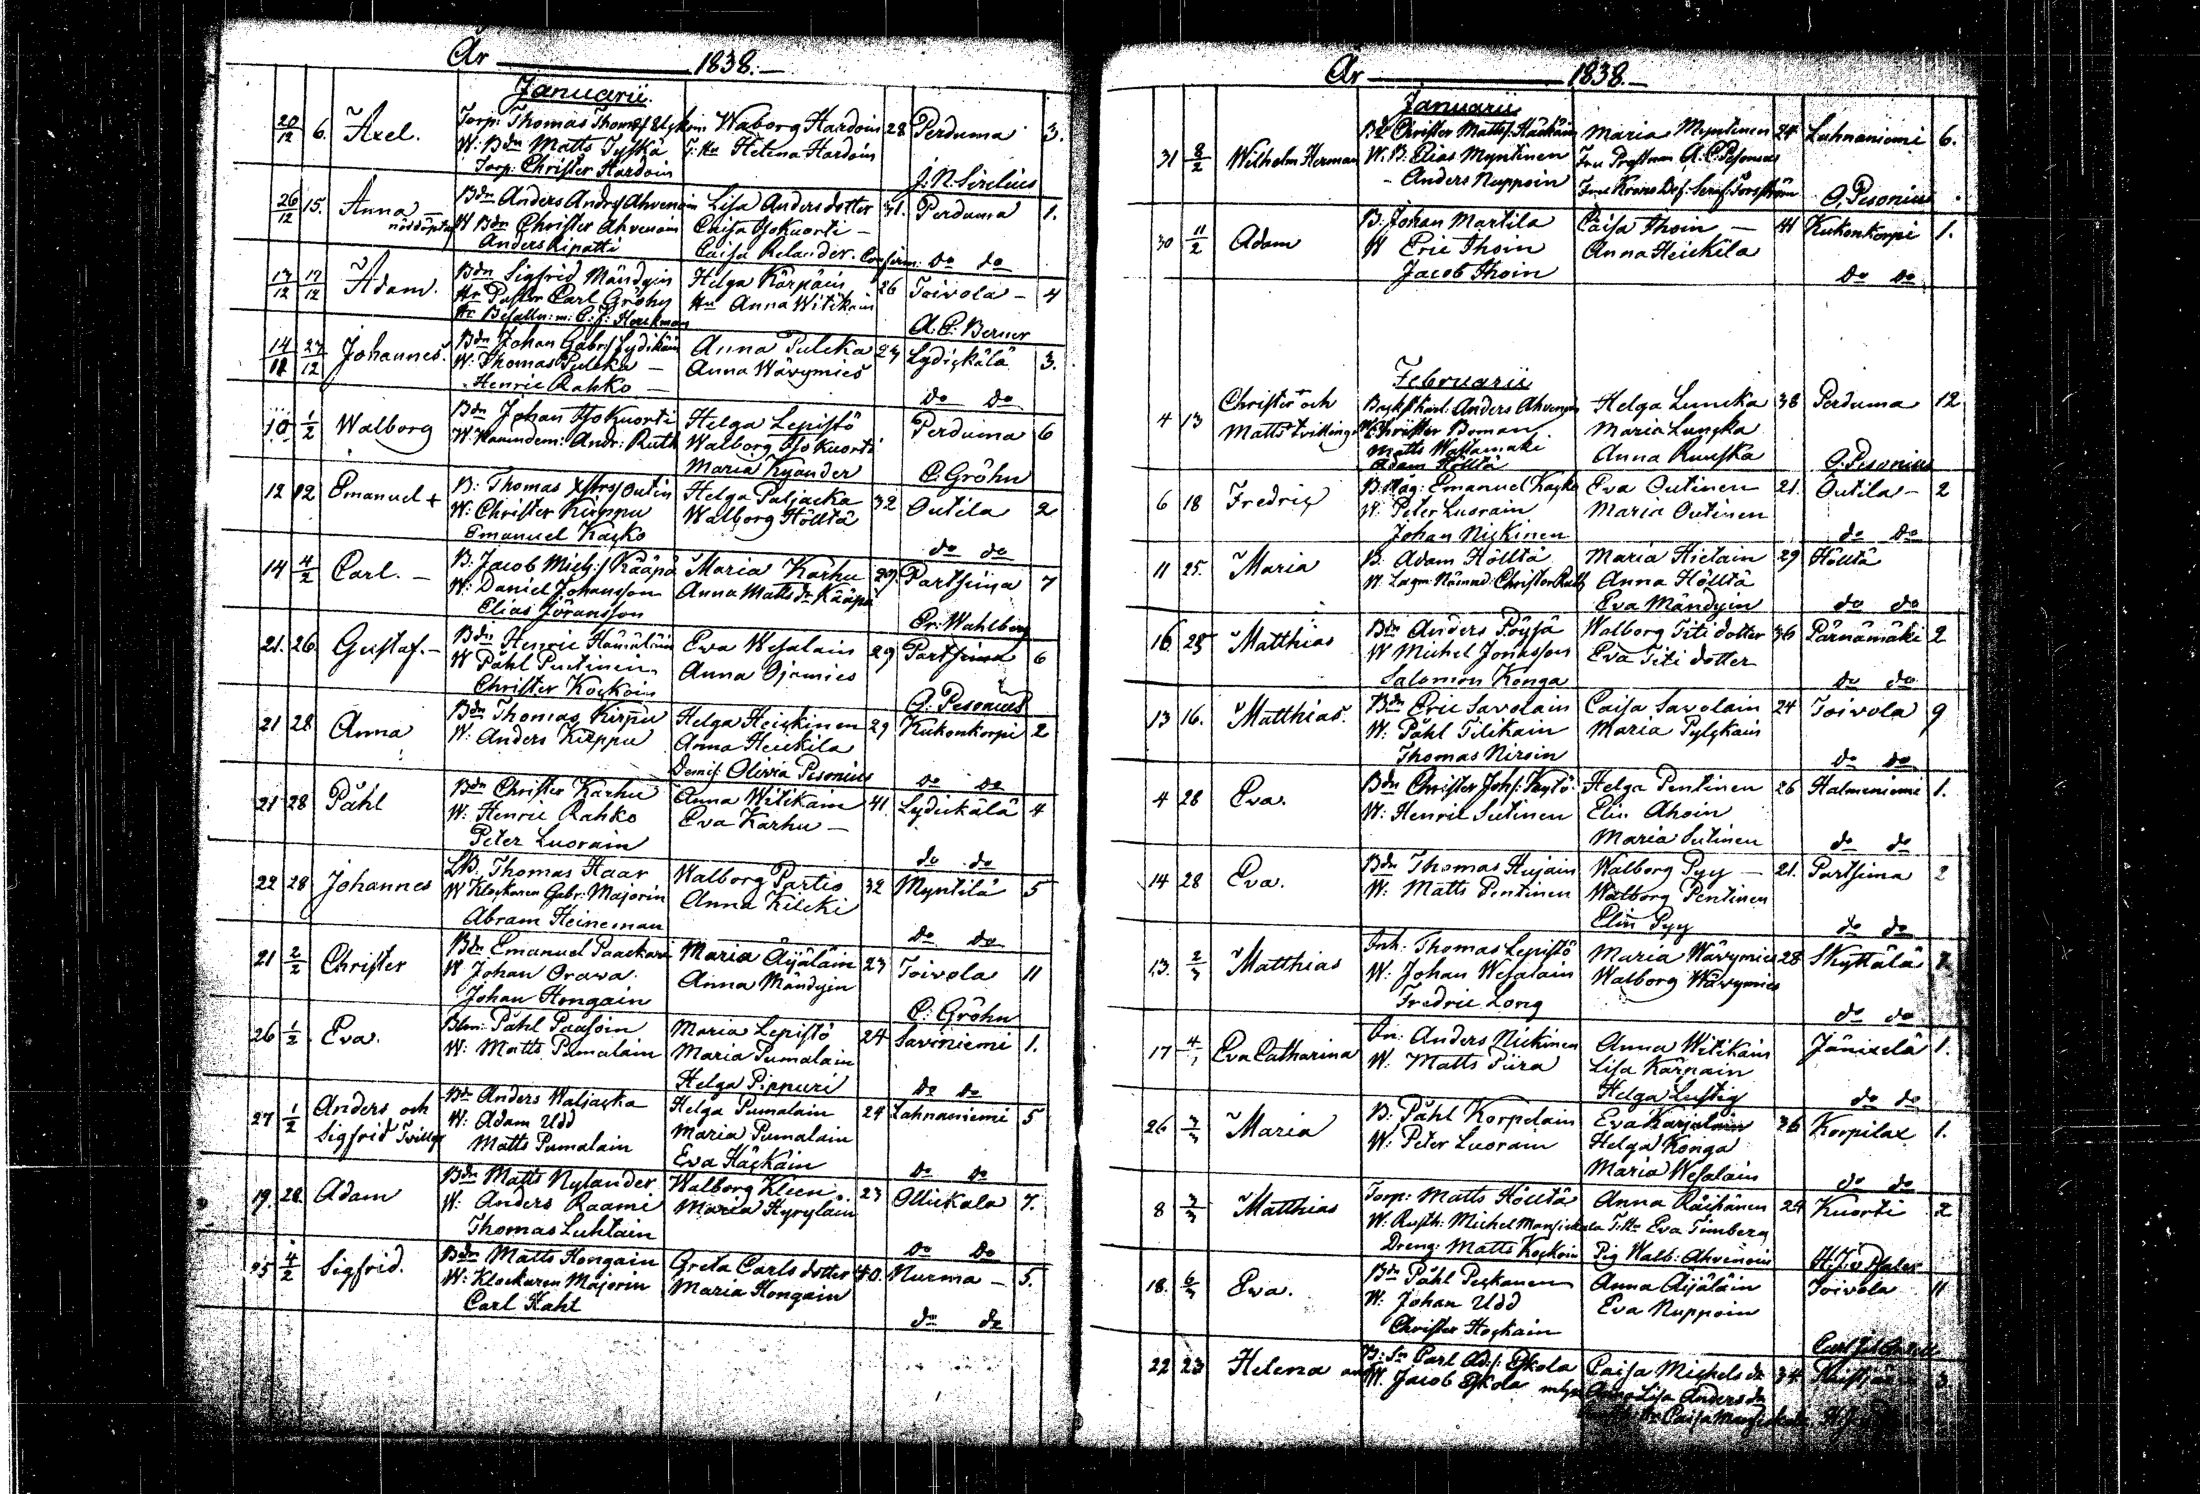 År 1838.—
Januarii.
20/12 6. Axel. Torp: Thomas Thomæs Waborg Hardoin 28 Perduma 3.
W: Bdn Matts Tyskä J: Hu Helena Hardoin
Torp: Christer Hardoin J. N. Sirelius
26/12 15. Anna — Bdn Anders Andrs Ahvenoin Lisa Andersdotter 31. Perduma 1.
nöddöpt W Bdn Christer Ahvenoin Caisa Isokuorti —
Anders Ripatti Caisa Relander. Confirm: do do
17/12 17/12 Adam. Bdn Sigfrid Mändyin Helga Kärpäin 26 Toivola — 4
Hr Pastor Carl Gröhn Hu Anna Witikain
Hr Befalln: m: C: J: Horkman A. C. Berner
14/11 27/12 Johannes. Bdn Johan Gabr: Lydikäin Anna Pulcka 23 Lydickälä 3.
W: Thomas Pulcka — Anna Wävymies
Henric Rahko — do do
10 1/2 Walborg Bdn Johan Isokuorti Helga Lepistö Perduma 6
W Andr: Ruth Walborg Isokuorti
Maria Kyander C. Gröhn
12 12 Emanuel + B: Thomas Outin Helga Paljacka 32 Outila 2
W: Christer Kirppu Walborg Hölltä
Emanuel Kacko do do
14 4/2 Carl. — B. Jacob Mich:s Kääpä Maria Karhu 29 Partsima 7
W: Daniel Johansson Anna Matts dr Kääpä
Elias Göransson Cr: Wahlberg
21. 26 Gustaf. — Bdn Henric Hämäläin Eva Wesalain 29 Partsima 6
W Påhl Pentinen Anna Ojamies
Christer Kockoin A. Pesonius
21 28 Anna Bdn Thomas Kirppu Helga Heickinen 29 Kukonkorpi 2
W: Anders Kirppu Anna Heickila
Demis: Olivia Pesonius do do
21 28 Påhl Bdn Christer Karhu Anna Witikain 41. Lydickälä 4
W: Henric Rahko Eva Karhu —
Peter Luorain do do
22 28 Johannes LB. Thomas Haar Walborg Partio 32 Myntilä 5
W Klockaren Gabr: Majorin Anna Kilcki
Abram Heineman do do
21 2/2 Christer Bdn Emanuel Paackari Maria Äijäläin 23 Toivola 11
W Johan Orawa. Anna Mändyin
Johan Hongain C: Gröhn
26 1/2 Eva. Bdn: Påhl Paasoin Maria Lepistö 24 Saviniemi 1.
W: Matts Pumalain Maria Pumalain
Helga Pippuri do do
27 1/2 Anders och Bdn Anders Waljacka Helga Pumalain 24 Lahnaniemi 5
Sigfrid Tvillgr W: Adam Udd Maria Pumalain
Matts Pumalain Eva Häckäin do do
19. 28. Adam Bdn Matts Nylander Walborg Kleen 23 Ollickala 7.
W: Anders Raami Maria Hyryläin
Thomas Luhtain do do
25 4/2 Sigfrid. Bdn Matts Hongain Greta Carls dotter 40. Nurma — 5.
W: Klockaren Majorin Maria Hongain
Carl Hahl do do
År 1838.—
Januarii
31 8/2 Wilhelm Herman Bd Christer Matts: Häckäin Maria Myntinen 24 Lahnaniemi 6.
W: B: Elias Myntinen Fru Prostinnan A. C. Pesonius
— Anders Nuppoin A. Pesonius
30 11/2 Adam B. Johan Martila Caisa Ihoin — 44 Kukonkorpi 1.
W Eric Ihoin Anna Heickila
Jacob Ihoin do do
Februarii
4 13 Christer och Anders Ahvenoin Helga Lumka 38 Perduma 12
Matts tvillingr W Christer Boman Maria Lumka
Matts Wattamäki Anna Ruuska
Adam Hölltä A. Pesonius
6 18 Fredric B. Måg: Emanuel Kacko Eva Outinen 21. Outila — 2
W: Peter Luorain Maria Outinen
Johan Nickinen do do
11 25. Maria B. Adam Hölltä Maria Hietain 29 Hölltä
W. Lagm: Nämnd: Christer Ruth Anna Hölltä
Eva Mändyin do do
16 25 Matthias Bdn Anders Pöysä Walborg Titi dotter 36 Pärnämäki 2
W Michel Jonasson Eva Titi dotter
Salomon Konga do do
13 16. Matthias. Bdn Eric Savolain Caisa Savolain 24 Toivola 9
W: Påhl Tilikain Maria Pylckäin
Thomas Niroin do do
4 28 Eva. Bdn Christer Johs: Kytö Helga Pentinen 26 Halmeniemi 1.
W: Henric Sutinen Elin Ahoin
Maria Sutinen do do
14 28 Eva. Bdn Thomas Hujain Walborg Pyy — 21. Partsima 2
W: Matts Pentinen Walborg Pentinen
Elin Pyy do do
13. 2/3 Matthias Inh: Thomas Lepistö Maria Wävymies 28 Skyttälä
W: Johan Wesalain Walborg Wävymies
Fredric Long do do
17 4/3 Eva Catharina Anders Nickinen Anna Witikain Jänixelä 1.
W: Matts Piira Lisa Kärnäin
Helga Lustig do do
26 3/3 Maria B: Påhl Korpelain Eva Karjalain 36 Korpilax 1.
W: Peter Luorain Helga Konga
Maria Wesalain do do
8 3/3 Matthias Torp: Matts Hölltä Anna Räisänen 24 Kuorti 2
W: Rusth: Michel Eva Timberg
Dreng: Matts Kockoin Pig Walb: Ahvenoin
18. 6/3 Eva. Bdn Påhl Peckanen Anna Äijäläin Toivola 11
W: Johan Udd Eva Nuppoin
Christer Hockain
22 23 Helena B: Sn Carl Ad:s: Eskola Caisa Michels dr 34 3
W. Jacob Eskola Lisa Anders dr
Caisa